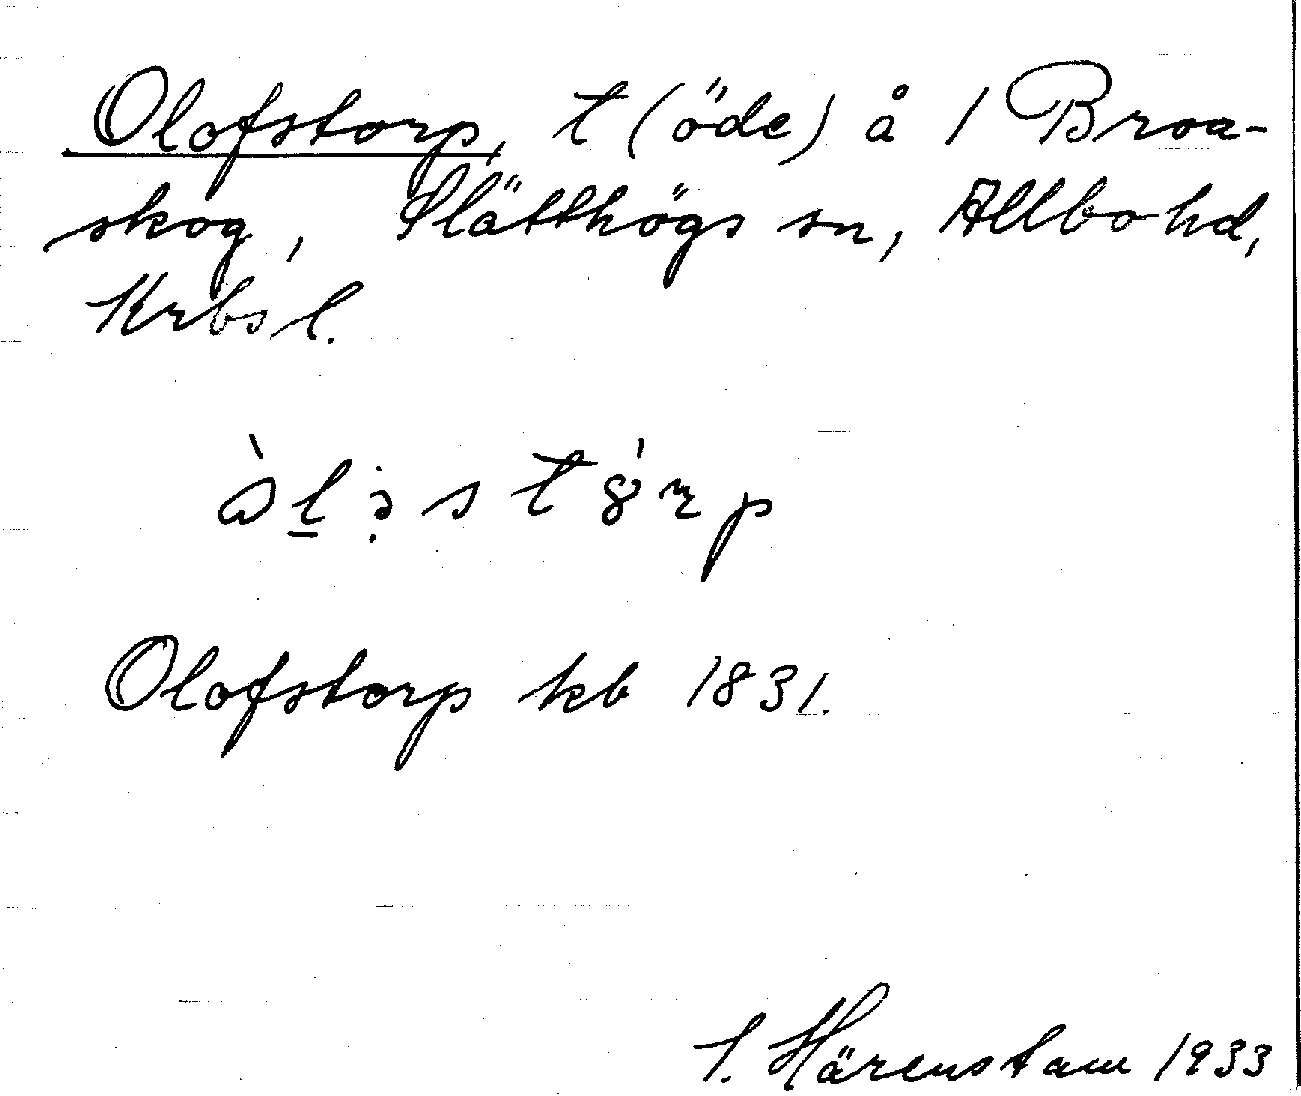 Olofstorp, t (öde) å 1 Broa-
skog, Slätthögs sn, Allbo hd,
Krbs l.
Olofstorp kb 1831.
Härenstam 1933